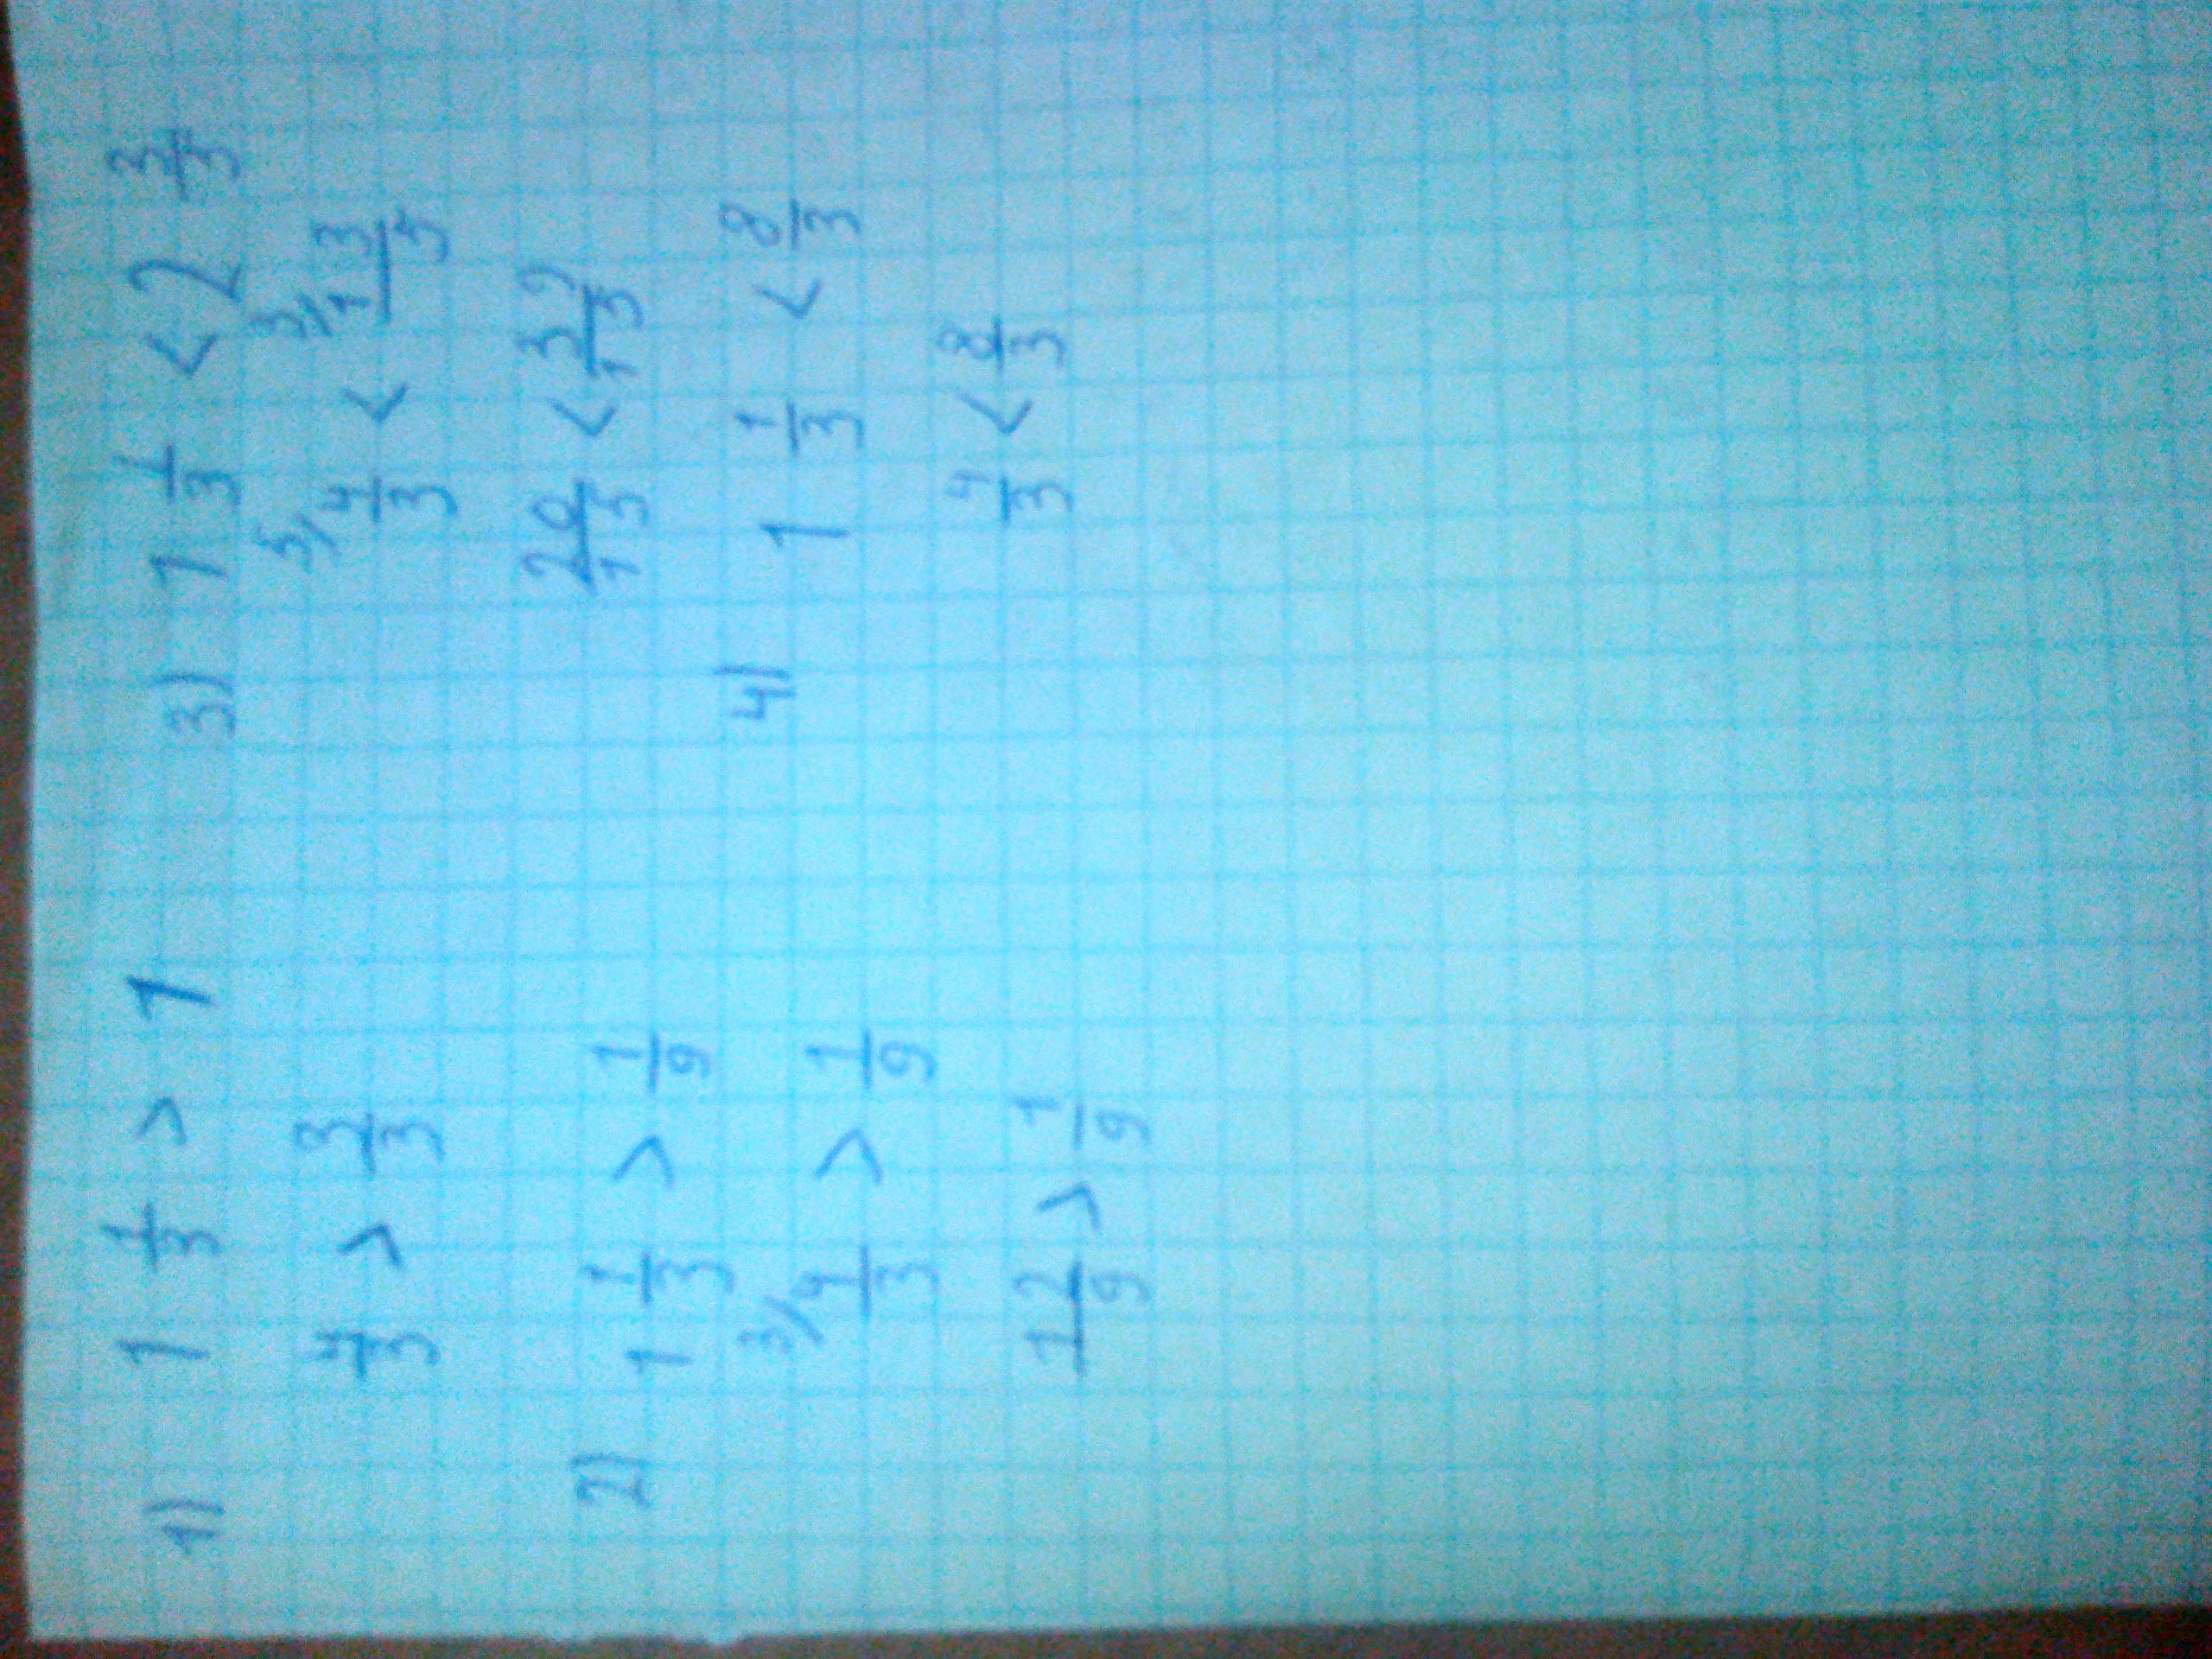 1) 1 1/3 > 1
4/3 > 3/3
2) 1 1/3 > 1/9
3/ 4/3 > 1/9
12/9 > 1/9
3) 1 1/3 < 2 3/5
5/ 4/3 < 3/ 13/5
20/15 < 39/15
4) 1 1/3 < 8/3
4/3 < 8/3